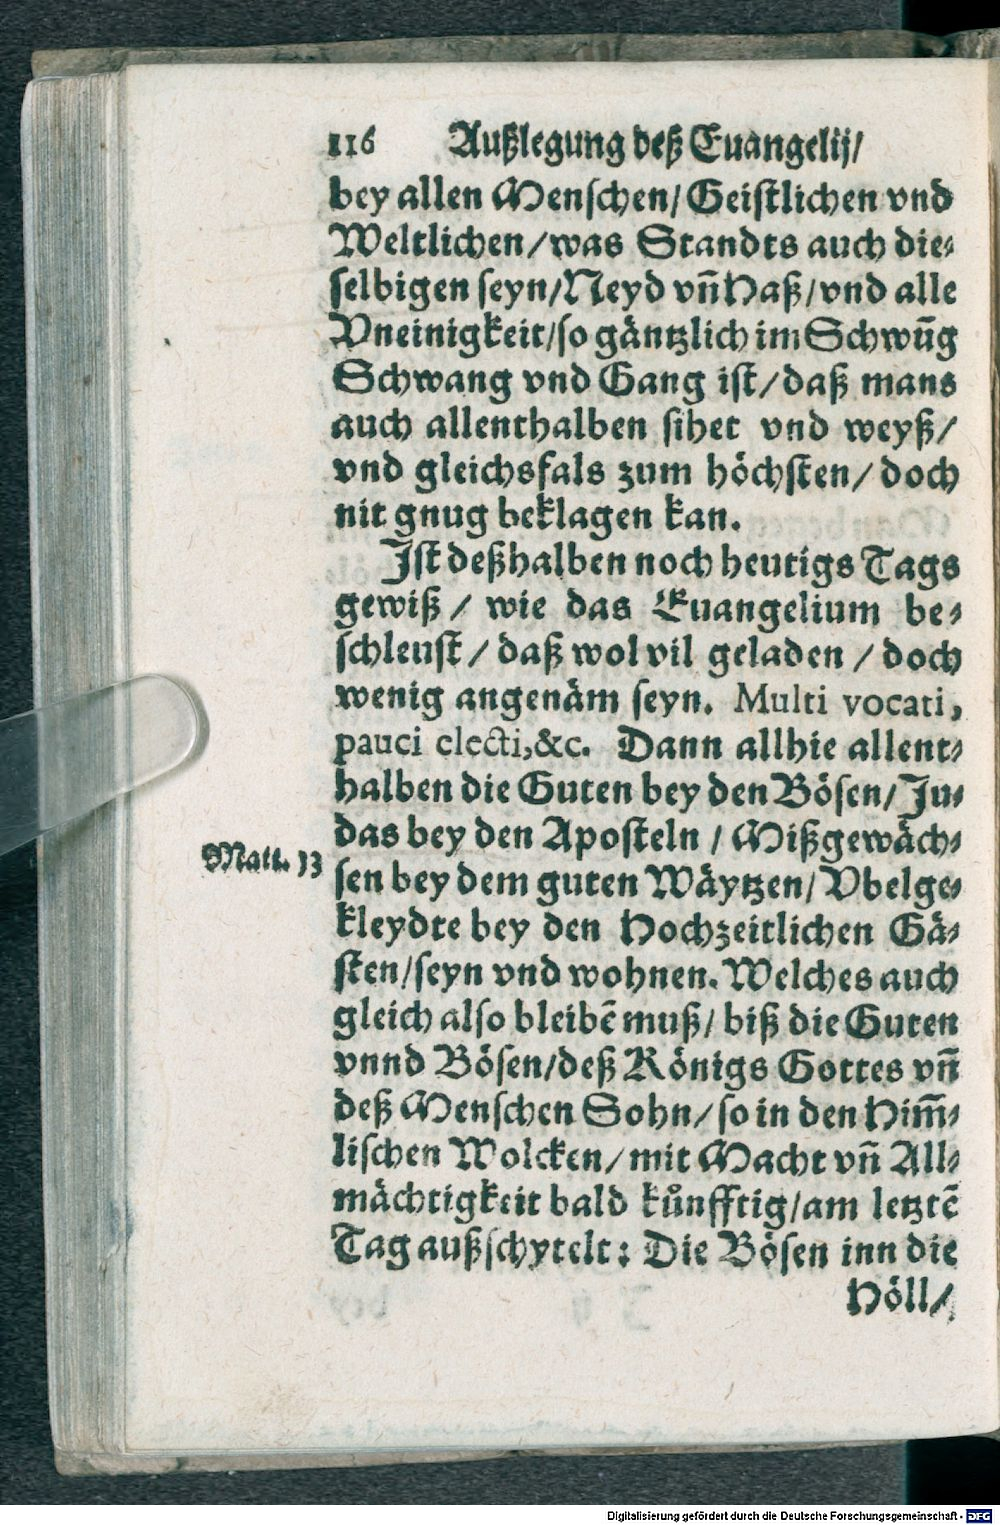 116 Außlegung deß Euangelij/
bey allen Menschen/ Geistlichen vnd
Weltlichen/ was Standts auch die⸗
selbigen seyn/ Neyd vñ Haß/ vnd alle
Vneinigkeit/ so gäntzlich im Schwūg
Schwang vnd Gang ist/ daß mans
auch allenthalben sihet vnd weyß/
vnd gleichsfals zum höchsten/ doch
nit gnug beklagen kan.
Ist deßhalben noch heutigs Tags
gewiß/ wie das Euangelium be⸗
schleust/ daß wol vil geladen/ doch
wenig angenäm seyn. Multi vocati,
pauci electi,&c. Dann allhie allent⸗
halben die Guten bey den Bösen/ Ju⸗
das bey den Aposteln/ Mißgewäch⸗
Matt. 13
sen bey dem guten Wäytzen/ Vbelge⸗
kleydte bey den Hochzeitlichen Gä⸗
sten/ seyn vnd wohnen. Welches auch
gleich also bleibē muß/ biß die Guten
vnnd Bösen/ deß Königs Gottes vñ
deß Menschen Sohn/ so in den Him̄⸗
lischen Wolcken/ mit Macht vñ All⸗
mächtigkeit bald kůnfftig/ am letztē
Tag außschytelt: Die Bösen inn die
Höll/
Digitalisierung gefördert durch die Deutsche Forschungsgemeinschaft - DFG